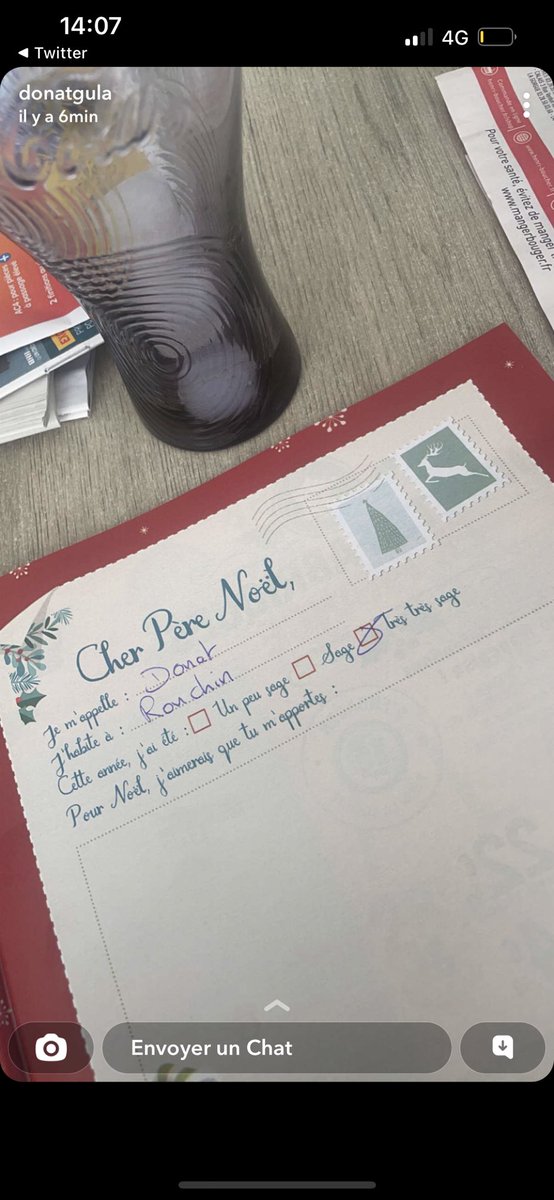 14:07
4G
Twitter
donatgula
il y a 6min
Commande en ligne
Pour votre santé, évitez de manger
www.mangerbouger.fr
Cher Père Noël,
Je m'appelle : Donat
J'habite à : Ronchin
Cette année, j'ai été : Un peu sage Sage Très très sage
Pour Noël, j'aimerais que tu m'apportes :
Envoyer un Chat